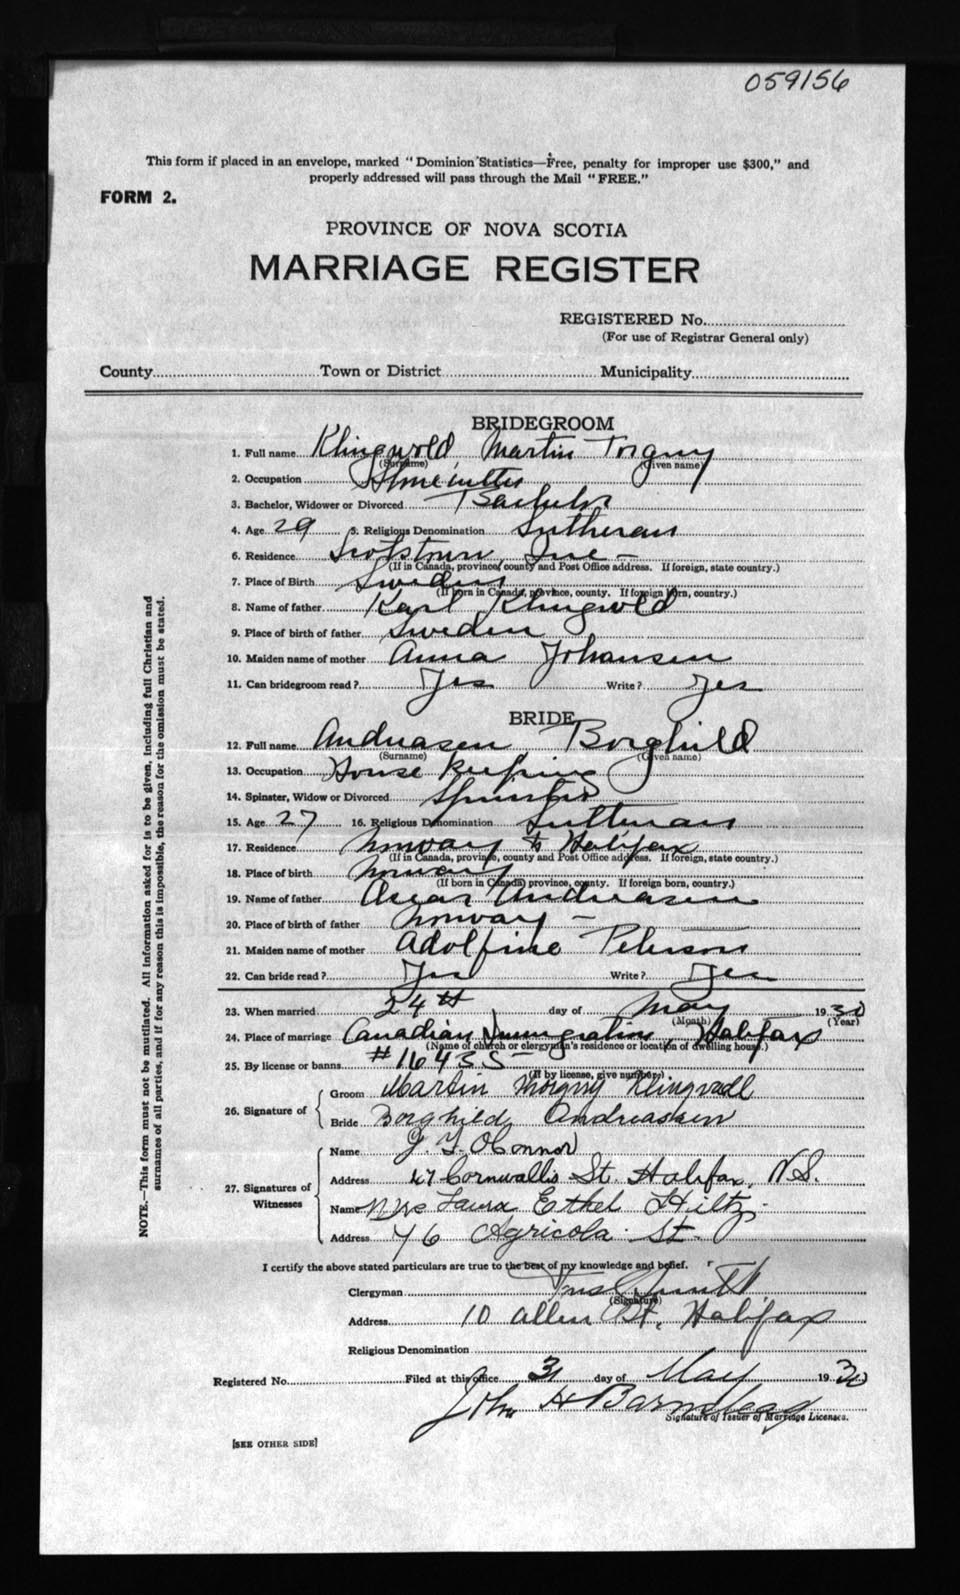 059156
This form if placed in an envelope, marked "Dominion Statistics—Free, penalty for improper use $300," and
properly addressed will pass through the Mail "FREE."
FORM 2.
PROVINCE OF NOVA SCOTIA
MARRIAGE REGISTER
REGISTERED No.
(For use of Registrar General only)
County Town or District Municipality
BRIDEGROOM
1. Full name Klingvold, Martin Torgny
(Surname) (Given name)
2. Occupation
3. Bachelor, Widower or Divorced Bachelor
4. Age 29 5. Religious Denomination Lutheran
6. Residence Scotstown, Que —
(If in Canada, province, county and Post Office address. If foreign, state country.)
7. Place of Birth Sweden
(If born in Canada, province, county. If foreign born, country.)
8. Name of father Karl Klingvold
9. Place of birth of father Sweden
10. Maiden name of mother Anna Johansen
11. Can bridegroom read? Yes Write? Yes
BRIDE
12. Full name Andreasen, Borghild
(Surname) (Given name)
13. Occupation House keeping
14. Spinster, Widow or Divorced Spinster
15. Age 27 16. Religious Denomination Lutheran
17. Residence Norway to Halifax
(If in Canada, province, county and Post Office address. If foreign, state country.)
18. Place of birth Norway
(If born in Canada, province, county. If foreign born, country.)
19. Name of father Andreasen
20. Place of birth of father Norway —
21. Maiden name of mother Adolfine Peterson
22. Can bride read? Yes Write? Yes
23. When married 24th day of May 1930
(Month) (Year)
24. Place of marriage Canadian Immigration, Halifax
(Name of church or clergyman's residence or location of dwelling house.)
25. By license or banns #16435 —
(If by license, give number)
26. Signature of
Groom Martin Torgny Klingvall
Bride Borghild Andreassen
27. Signatures of Witnesses
Name J. O'Connor
Address 47 Cornwallis St. Halifax, N.S.
Name Mrs Laura Ethel Hiltz
Address 46 Agricola St.
I certify the above stated particulars are true to the best of my knowledge and belief.
Clergyman Smith
(Signature)
Address 10 Allen St, Halifax
Religious Denomination
Registered No. Filed at this office 31 day of May 1930
John H Barnstead
Signature of Issuer of Marriage Licenses.
[SEE OTHER SIDE]
NOTE.—This form must not be mutilated. All information asked for is to be given, including full Christian and
surnames of all parties, and if for any reason this is impossible, the reason for the omission must be stated.